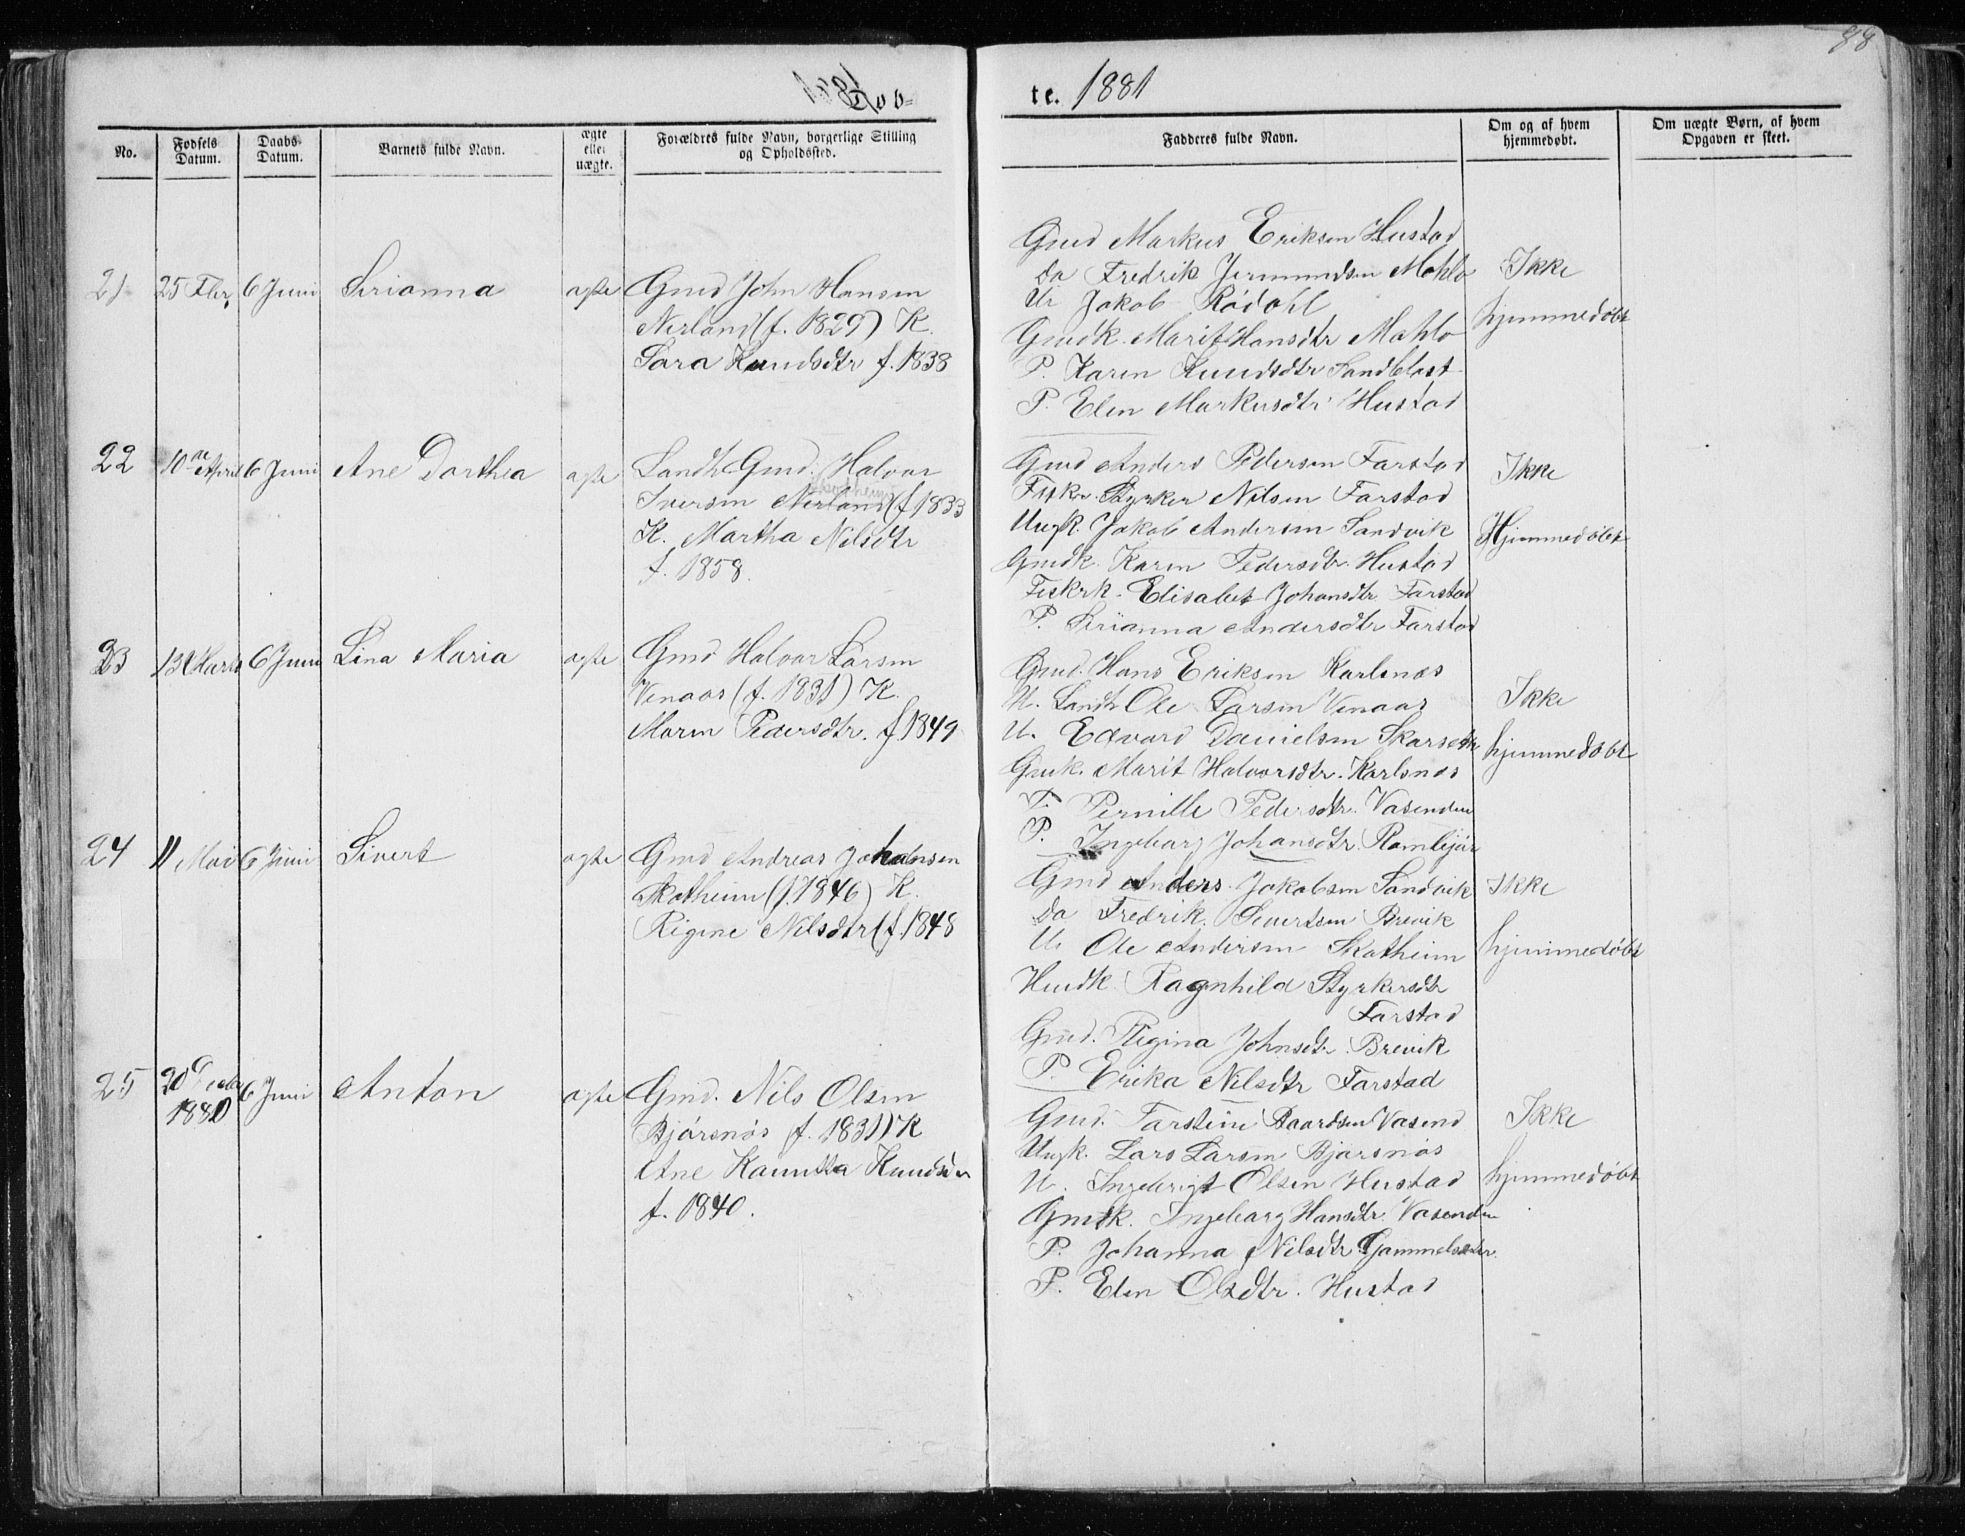 88
Døb=
te. 1881
No.
Fødsels Datum.
Daabs-Datum.
Barnets fulde Navn.
ægte eller uægte.
Forældres fulde Navn, borgerlige Stilling og Opholdssted.
Fadderes fulde Navn.
Om og af hvem hjemmedøbt.
Om uægte Børn, af hvem Opgaven er skeet.
21 25 Fbr. 6 Juni Sirianna ægte
Gmd John Hansen
Nerland (f. 1829) K.
Sara Knudsdtr f. 1838
Gmd Markus Eriksen Hustad
Do Fredrik Jermundsen Mahlo
U. Jakob Rødahl
Gmdk. Marit Hansdtr Mahlo
P. Karen Knudsdtr Sandblast
P. Elen Markusdtr Hustad
Ikke
hjemmedøbt
22 10de April 6 Juni Ane Dorthea ægte
Landh Gmd. Halvor
Skotheim
Iversen Nerland (f 1833
K. Martha Nilsdtr
f. 1858.
Gmd Anders Pedersen Farstad
Fiskr. Styrker Nilsen Farstad
Ungk. Jakob Andersen Sandvik
Gmdk. Karen Pedersdtr. Hustad
Fiskrk. Elisabet Johansdtr. Farstad
P. Sirianna Andersdtr Farstad
Ikke
Hjemmedøbt
23 13 Marts 6 Juni Lina Maria ægte
Gmd Halvor Larsen
Venaas (f. 1831) K.
Maren Pedersdtr. f 1849
Gmd. Hans Eriksen Karlsnæs
U. Landh Ole Larsen Venaas
U. Edvard Danielsen Skarseth
Gmk. Marit Halvorsdtr. Karlsnæs
P. Pernille Pedersdtr. Vasenden
P. Ingebarg Johansdtr.
Ikke
hjemmedøbt
24 11 Mai 6 Juni Sivert ægte
Gmd Andreas Johansen
Skotheim (f. 1846) K.
Rigine Nilsdtr (f. 1848
Gmd Anders Jakobsen Sandvik
Do Fredrik Sivertsen Brevik
U. Ole Andersen Skotheim
Hmdk. Ragnhild Styrkersdtr
Farstad
Gmd. Rigina Johnsdtr. Brevik
P. Erika Nilsdtr Farstad
Ikke
hjemmedøbt
25 20 Decbr 1880 6 Juni Anton ægte
Gmd. Nils Olsen
Bjørsnøs (f. 1831) K
Ane Kamilla Knudsdtr
f. 1840.
Gmd. Tarstein Baardsen Vasend
Ungk. Lars Larsen Bjørsnøs
U. Ingebrigt Olsen Hustad
Gmdk. Ingebarg Hansdtr. Vasenden
P. Johanna Nilsdtr. Gammelsæter.
P. Elen Olsdtr. Hustad
Ikke
hjemmedøbt